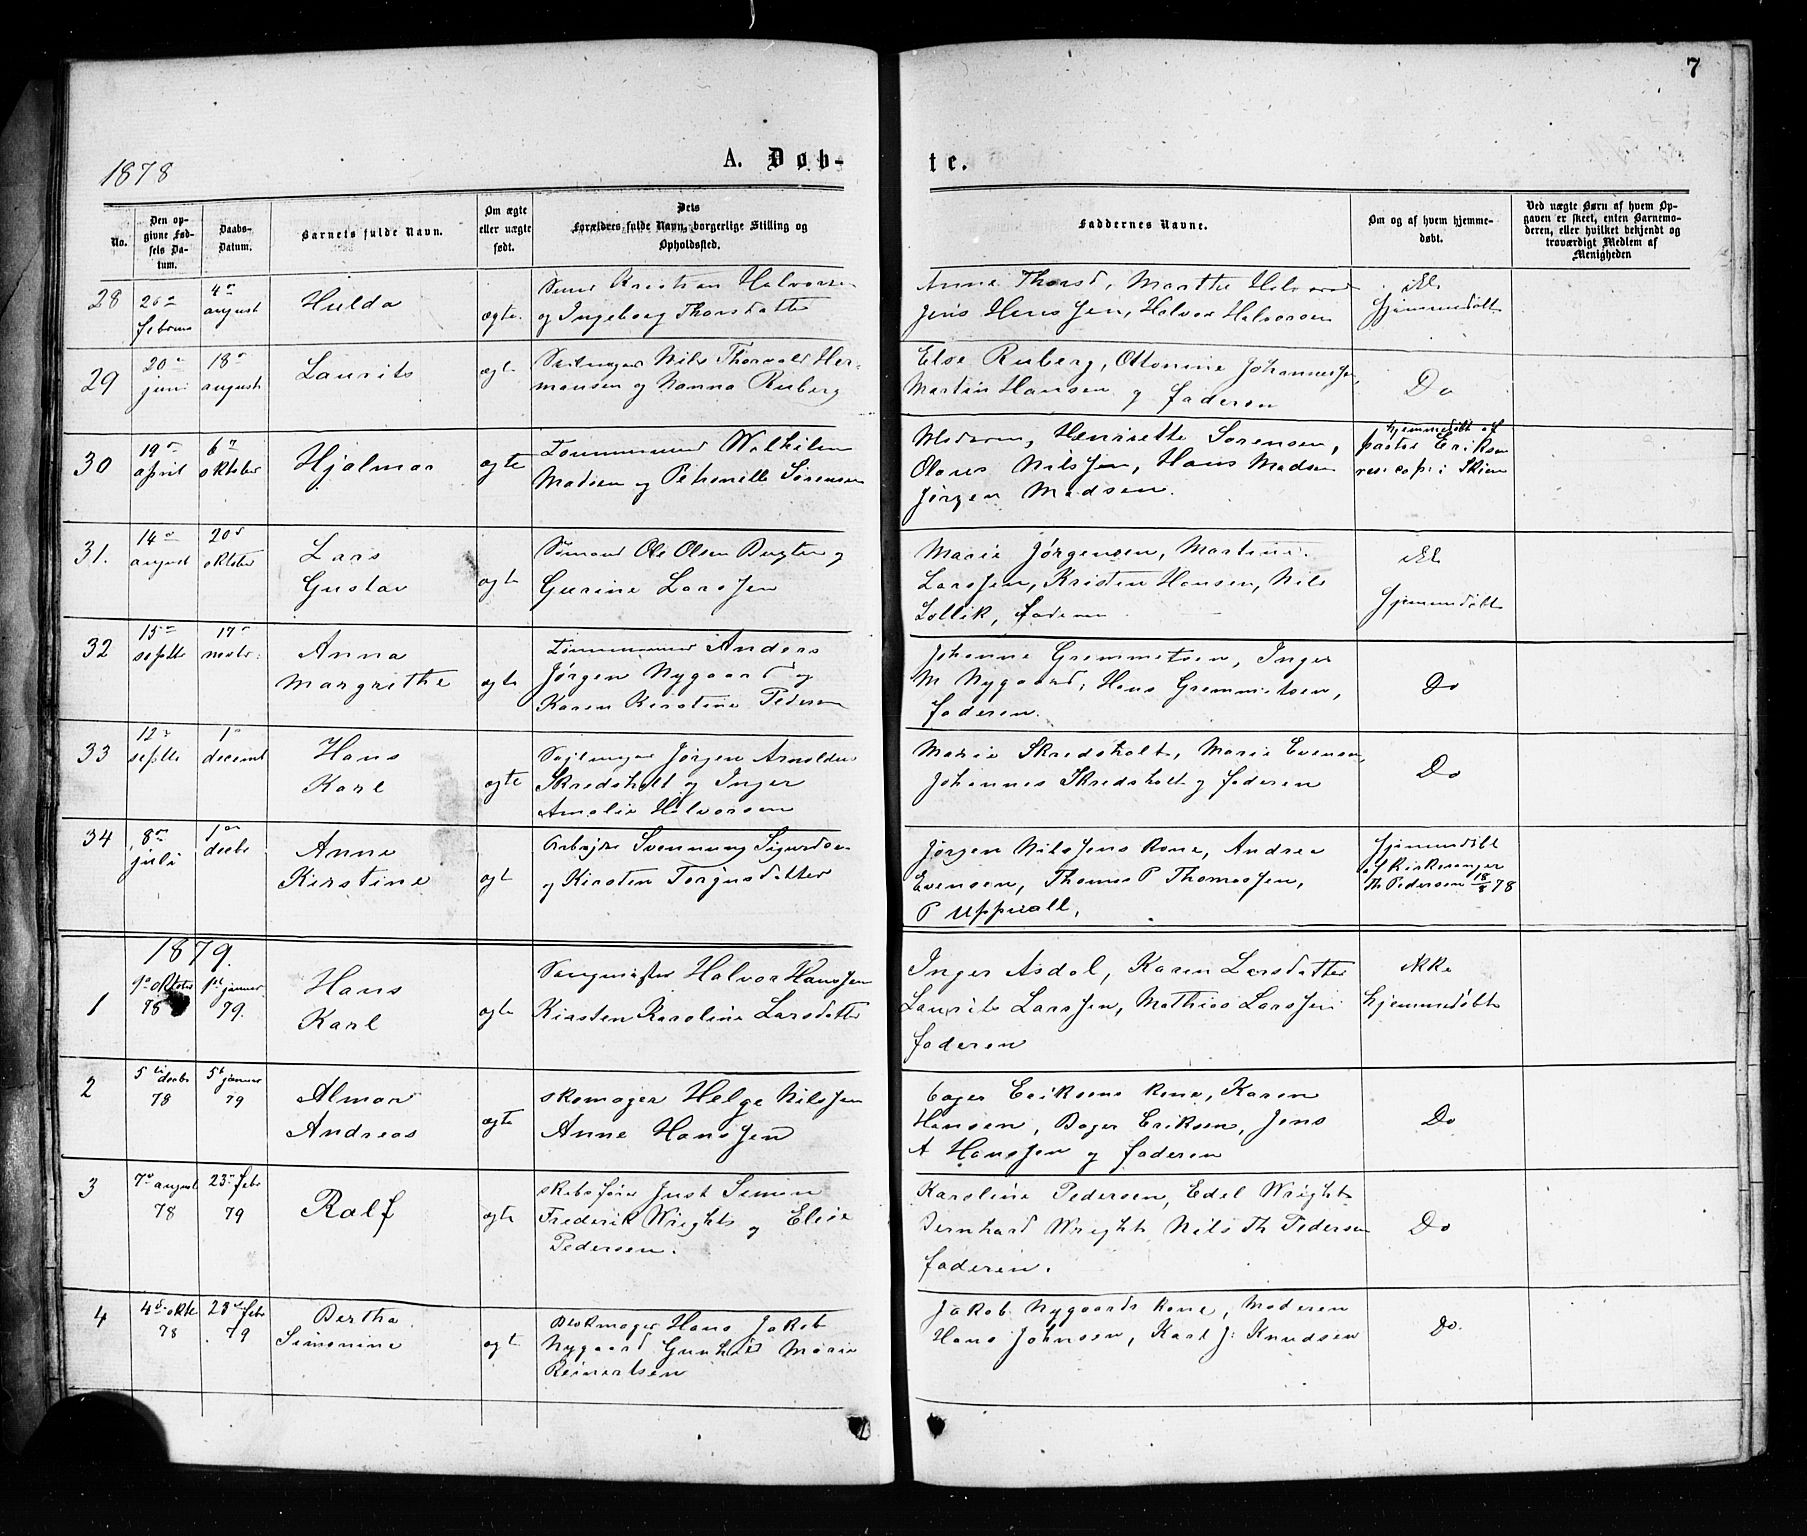 7
1878
A. Døb-
te.
No.
Den op-
givne Fød-
sels Da-
tum.
Daabs-
Datum.
Barnets fulde Navn.
Om ægte
eller uægte
født.
Dets
Forældres fulde Navn, borgerlige Stilling og
Opholdssted.
Faddernes Navne.
Om og af hvem hjemme-
døbt.
Ved uægte Børn af hvem Op-
gaven er skeet, enten Barnemo-
deren, eller hvilket bekjendt og
troværdigt Medlem af
Menigheden
28
februa
4de
august
Hulda
ægte.
Kristian Halvorsen
og Ingeborg Thorsdatter
Anne Thorsd, Marthe Halvorsd
Jens Hansen, Halvor Halvorsen
hjemmedøbt
29
20
juni
18
august
Laurits
ægt.
Nils Thorvald Her-
mansen og Nanna Ruberg
Else Ruberg, Ottomine Johannesen,
Martin Hansen og faderen
Do
30
19
april
6
oktober
Hjalmar
ægte
Tømmermand Wilhelm
Madsen og Petronille Sørensen
Moderen, Henriette Sørensen,
Olaves Nilssen, Hans Madsen
Jørgen Madsen.
hjemmedøbt af
pastor Eriksen
res: cap: i Skien
31.
14
august
20
oktober
Lars
Gustav
ægte
Sømand Ole Olsen og
Gurine Larssen
Marie Jørgensen, Martine
Larssen, Kristen Hansen, Nils
Lollik, faderen
hjemmedøbt
32
15
septb
17
novbr.
Anna
Margrethe
ægte
Tømmermand Anders
Jørgen Nygaard og
Karen Kirstine Pedersen
Johanne Gremmetsen, Inger
M Nygaard, Hans Gremmetsen,
faderen.
Do
33
12
septb
1
decemb
Hans
Karl
ægte
Jørgen Arnoldsen
Skredsholt og Inger
Amalie Halvorsen
Marie Skredsholt, Marie Evensen,
Johannes Skredsholt og faderen
Do
34
8
juli
1
decbr
Anne
Kirstine
ægt
Arbejder Svennung Sigurdsen
og Kirsten Torjusdatter
Jørgen Nilssens kone, Andrea
Evensen, Thomas P Thomassen,
P Uppvall.
hjemmedøbt
af Kirkesanger
Th Pedersen 18/8 78
1879.
1
oktober
78
januar
79.
Hans
Karl
ægte
Sangmester Halvor Hanssen
Kirsten Karoline Larsdatter
Inger Asdal, Karen Larsdatter
Laurits Larssen, Mathias Larssen
faderen
ikke
hjemmedøbt
2
5 decbr
78
5 januar
79
Almar
Andreas
ægte
skomager Helge Nilssen
Anne Hanssen
Eriksens kone, Karen
Hansen, Boger Eriksen, Jens
A Hanssen og faderen
Do
3
7 august
78
23 febr
79
Ralf
ægte
skibsfører Just Simon
Frederik Wright og Elise
Pedersen.
Karoline Pedersen, Edel Wright
Bernhard Wright Nils Th Pedersen
faderen.
Do
4
4 oktbr
78
23 febr
79
Bertha
Simonine
ægt
Blokmager Hans Jakob
Nygaard Gunhild Marie
Reinertsen
Jakob Nygaards kone, Moderen
Hans Johnsen, Karl J: Knudsen
Do.